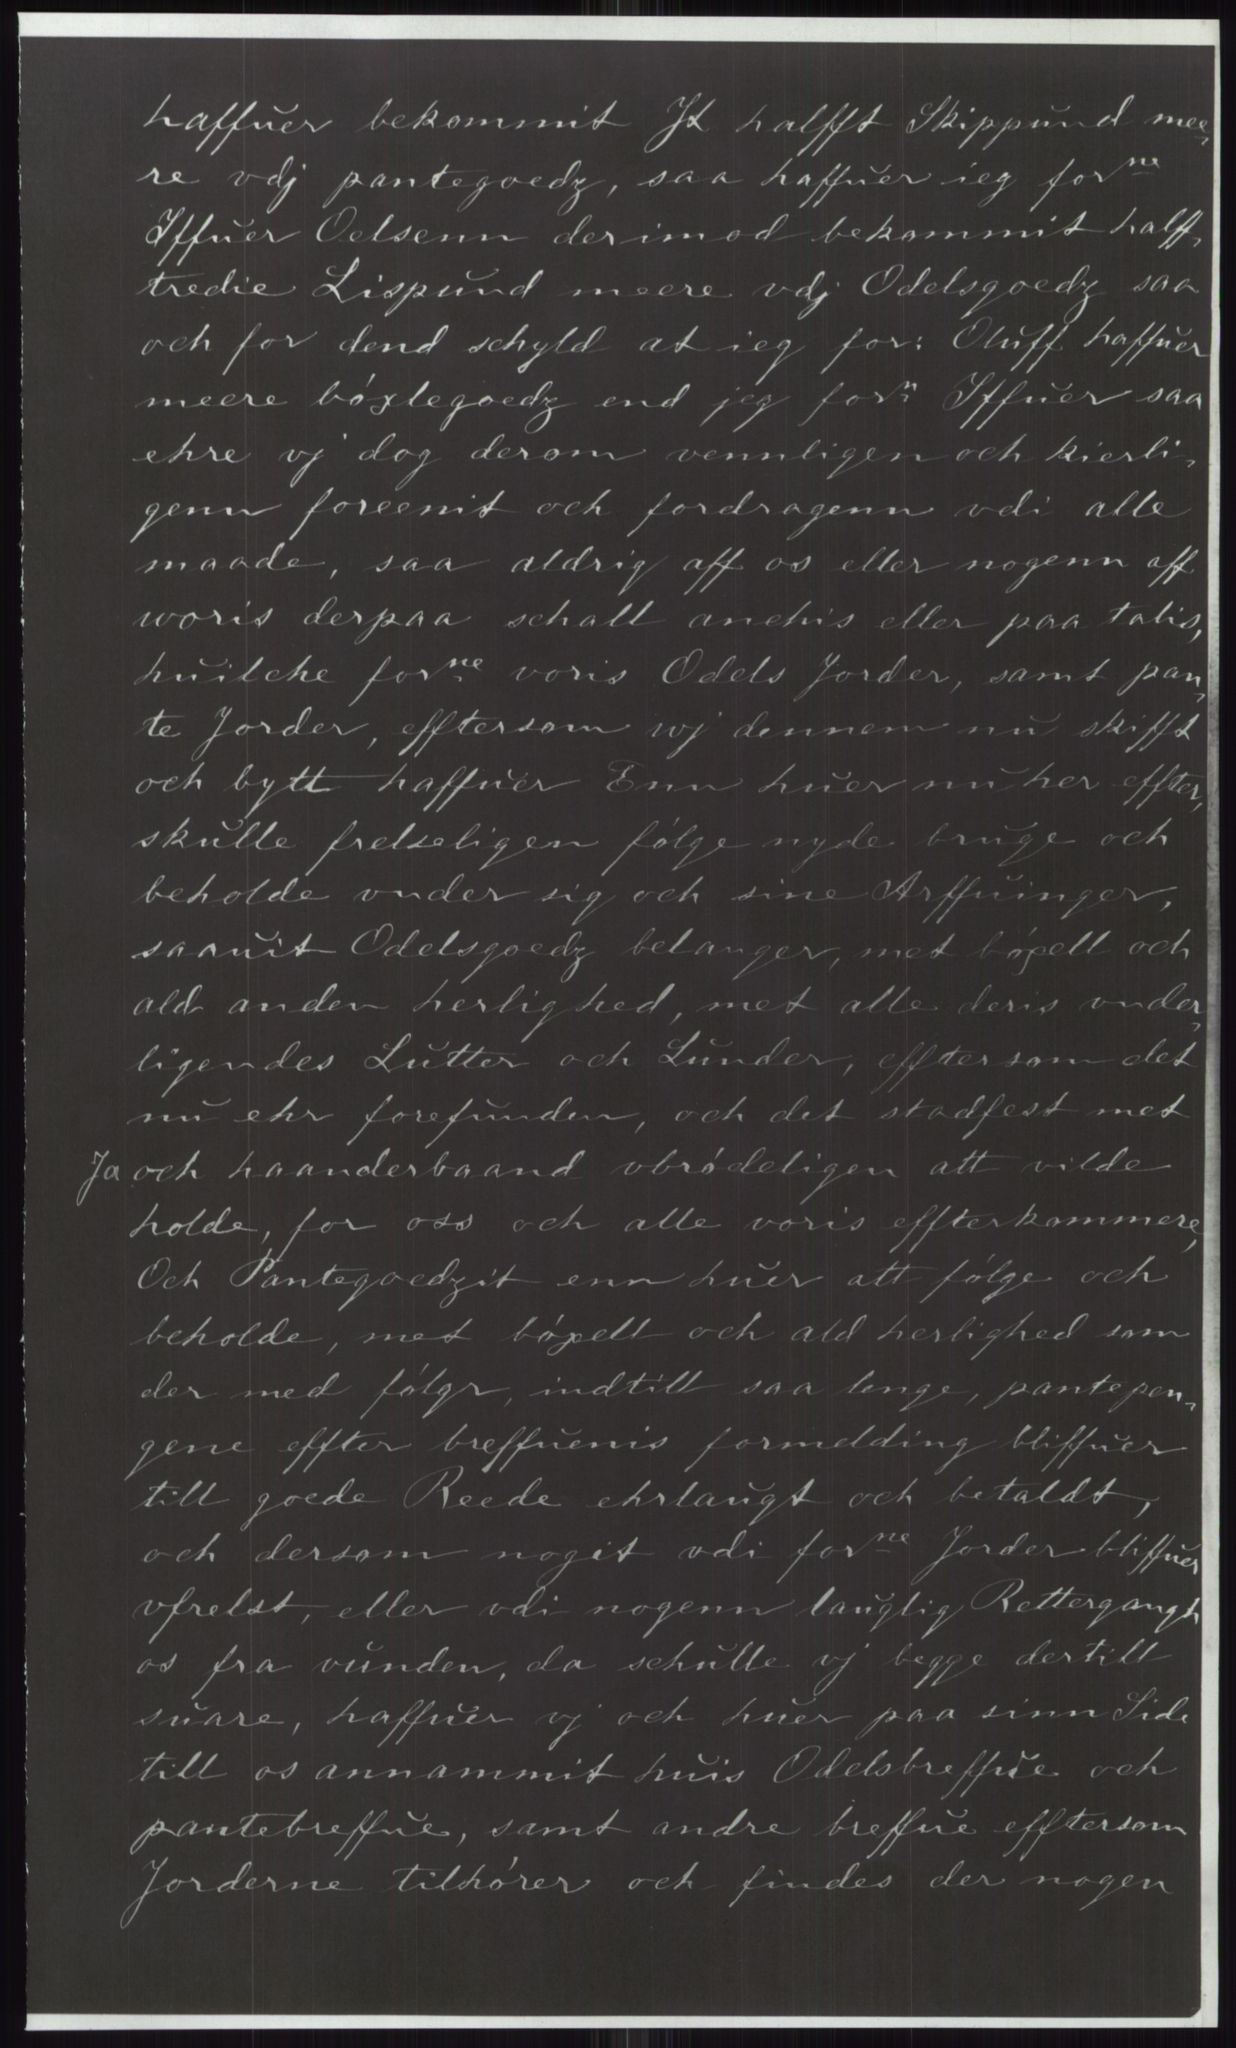 haffuer bekommit It halfft Skippund mee,
re vdj pantegoedz, saa haffuer ieg forne
Iffuer Oelsenn derimod bekommit halff,
tredie Lispund meere vdj Odelsgoedz saa
och for dend schyld at ieg for: Oluff haffuer
meere bøxlegoedz end jeg forn Iffuer saa
ehre vj dog derom vennligen och kierli,
genn foreenit och fordragenn vdi alle
maade, saa aldrig aff os eller nogenn aff
woris derpaa schall anchis eller paa talis,
huilche forne voris Odels Jorder, samt pan,
te Jorder, efftersom wj dennem nu skifft
och bytt haffuer Enn huer nu her effter,
skulle frelseligen følge nyde bruge och
beholde vnder sig och sine Arffuinger,
saauit Odelsgoedz belanger, met bøxell och
ald anden herlighed, met alle deris vnder,
ligendes Lutter och Lunder, efftersom det
nu ehr forefunden, och det stadfest met
Ja och haanderbaand vbrødeligen att vilde
holde, for oss och alle voris effterkommere,
Och Pantegoedzit enn huer att følge och
beholde, met bøxell och ald herlighed som
der med følgr, indtill saa lenge, pantepen,
gene effter breffuenis formelding bliffuer
till goede Reede ehrlaugt och betaldt,
och dersom nogit vdi forne Jorder bliffuer
vfrelst, eller vdi nogenn lauglig Rettergangh
os fra vunden, da schulle vj begge dertill
suare, haffuer vj och huer paa sinn Side
till os annammit huis Odelsbreffue och
pantebreffue, samt andre breffue efftersom
Jorderne tilhører och findes der nogen